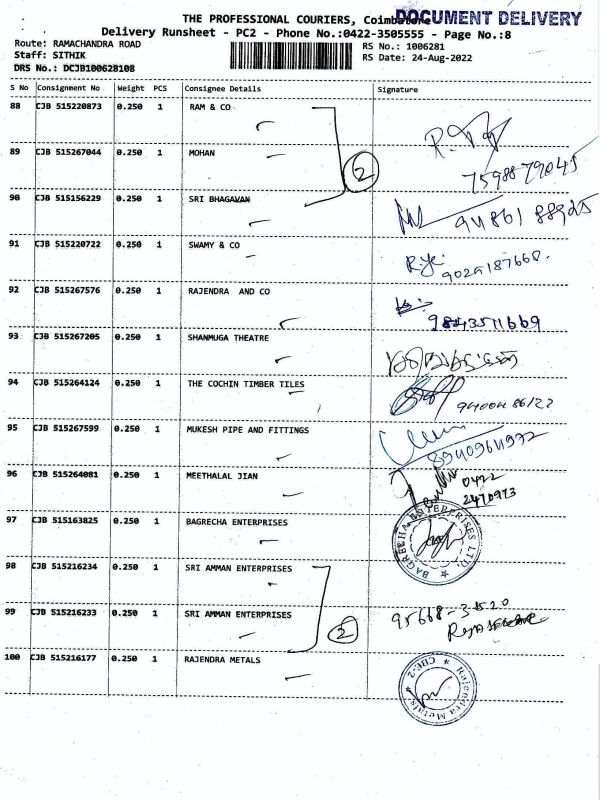 THE PROFESSIONAL COURIERS, Coimbatore
DOCUMENT DELIVERY
Delivery Runsheet - PC2 - Phone No.:0422-3505555 - Page No.:8
Route: RAMACHANDRA ROAD
RS No.: 1006281
Staff: SITHIK
RS Date: 24-Aug-2022
DRS No.: DCJB100628108
S No Consignment No Weight PCS Consignee Details Signature
88 CJB 515220873 0.250 1 RAM & CO
89 CJB 515267044 0.250 1 MOHAN
2
7598879045
90 CJB 515156229 0.250 1 SRI BHAGAVAN
91 CJB 515220722 0.250 1 SWAMY & CO
9025187668.
92 CJB 515267576 0.250 1 RAJENDRA AND CO
9843511669
93 CJB 515267205 0.250 1 SHANMUGA THEATRE
94 CJB 515264124 0.250 1 THE COCHIN TIMBER TILES
95 CJB 515267599 0.250 1 MUKESH PIPE AND FITTINGS
96 CJB 515264081 0.250 1 MEETHALAL JIAN
0422
2470973
97 CJB 515163825 0.250 1 BAGRECHA ENTERPRISES
BAGRECHA ENTERPRISES LTD.
98 CJB 515216234 0.250 1 SRI AMMAN ENTERPRISES
99 CJB 515216233 0.250 1 SRI AMMAN ENTERPRISES
2
100 CJB 515216177 0.250 1 RAJENDRA METALS
Rajendra Metals CBE-2